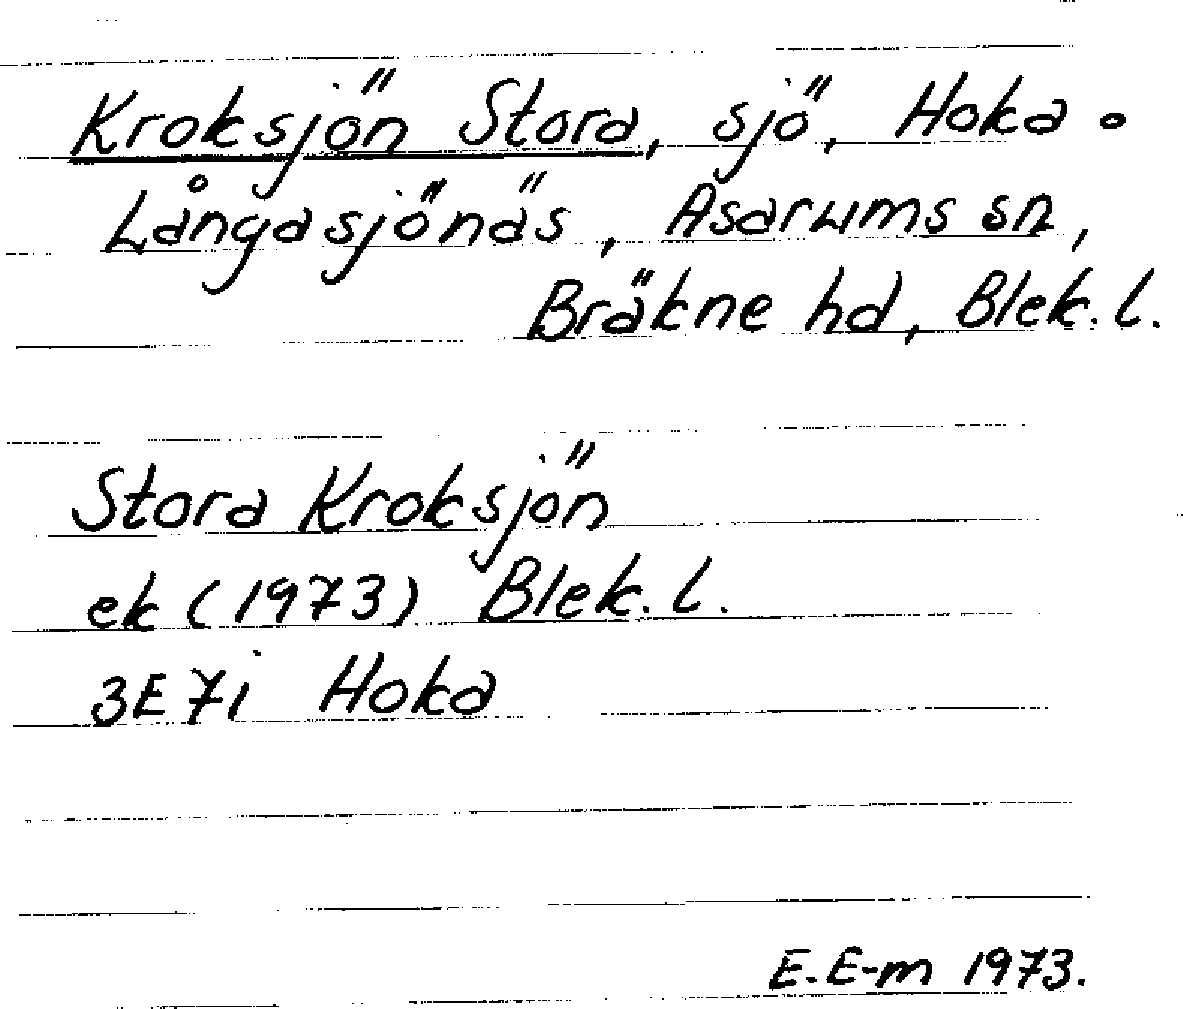 Kroksjön Stora, sjö, Hoka o
Långasjönäs, Asarums sn,
Bräkne hd, Blek. l.
Stora Kroksjön
ek (1973) Blek. l.
3E 7i Hoka
E. E-m 1973.